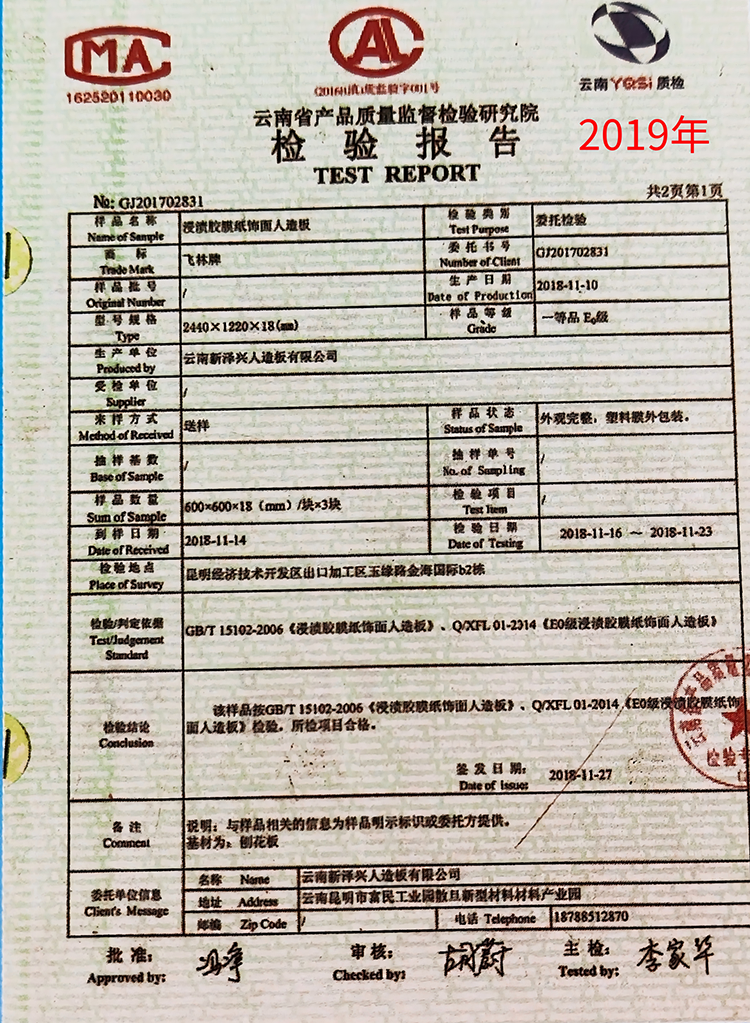 MA
162520110030
AL
(2016)(滇)质监验字001号
云南YQSi质检
云南省产品质量监督检验研究院
检验报告
2019年
TEST REPORT
№: GJ201702831
共2页第1页
样品名称 Name of Sample 浸渍胶膜纸饰面人造板 检验类别 Test Purpose 委托检验
商标 Trade Mark 飞林牌 委托书号 Number of Client GJ201702831
样品批号 Original Number / 生产日期 Date of Production 2018-11-10
型号规格 Type 2440×1220×18(mm) 样品等级 Grade 一等品 E₀级
生产单位 Produced by 云南新泽兴人造板有限公司
受检单位 Supplier /
来样方式 Method of Received 送样 样品状态 Status of Sample 外观完整，塑料膜外包装。
抽样基数 Base of Sample / 抽样单号 No. of Sampling /
样品数量 Sum of Sample 600×600×18（mm）/块×3块 检验项目 Test Item /
到样日期 Date of Received 2018-11-14 检验日期 Date of Testing 2018-11-16 ～ 2018-11-23
检验地点 Place of Survey 昆明经济技术开发区出口加工区玉缘路金海国际b2栋
检验/判定依据 Test/Judgement Standard GB/T 15102-2006《浸渍胶膜纸饰面人造板》、Q/XFL 01-2014《E0级浸渍胶膜纸饰面人造板》
检验结论 Conclusion 该样品按GB/T 15102-2006《浸渍胶膜纸饰面人造板》、Q/XFL 01-2014《E0级浸渍胶膜纸饰
面人造板》检验，所检项目合格。
签发日期: Date of issue: 2018-11-27
备注 Comment 说明：与样品相关的信息为样品明示标识或委托方提供。
基材为：刨花板
委托单位信息 Client's Message 名称 Name 云南新泽兴人造板有限公司
地址 Address 云南昆明市富民工业园散旦新型材料材料产业园
邮编 Zip Code / 电话 Telephone 18788512870
批准: Approved by: 冯 审核: Checked by: 胡蔚 主检: Tested by: 李家华